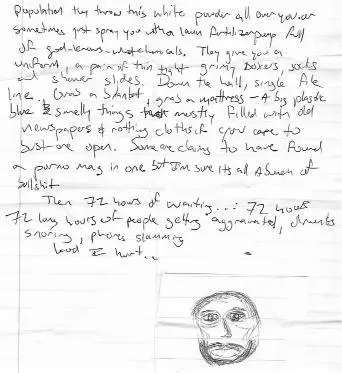 population they throw this white powder all over you or
sometimes just spray you with a lawn fertilizer pump full
of god-knows-what chemicals. They give you a
uniform, a pair of thin tight grimy boxers, socks
and shower slides. Down the hall, single file
line. Grab a blanket, grab a mattress - A big plastic
blue smelly things mostly filled with old
newspapers & rotting cloths if you care to
bust one open. Someone claims to have found
a porno mag in one but I'm sure its all A bunch of
bullshit
Then 72 hours of waiting...: 72 hours
72 long hours of people getting aggravated, drunks
snoring, phones slamming
loud I hurt..